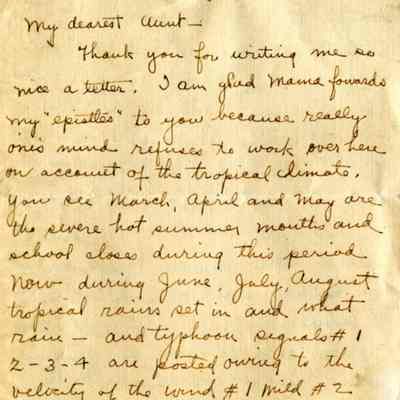 My dearest Aunt—
Thank you for writing me so
nice a letter. I am glad Mama fowards
my "epistles" to you because really
one's mind refuses to work over here
on account of the tropical climate.
You see March, April and May are
the severe hot summer months and
school closes during this period
Now during June, July, August
tropical rains set in and what
rain — and typhoon signals # 1
2-3-4 are posted owing to the
velocity of the wind # 1 mild # 2